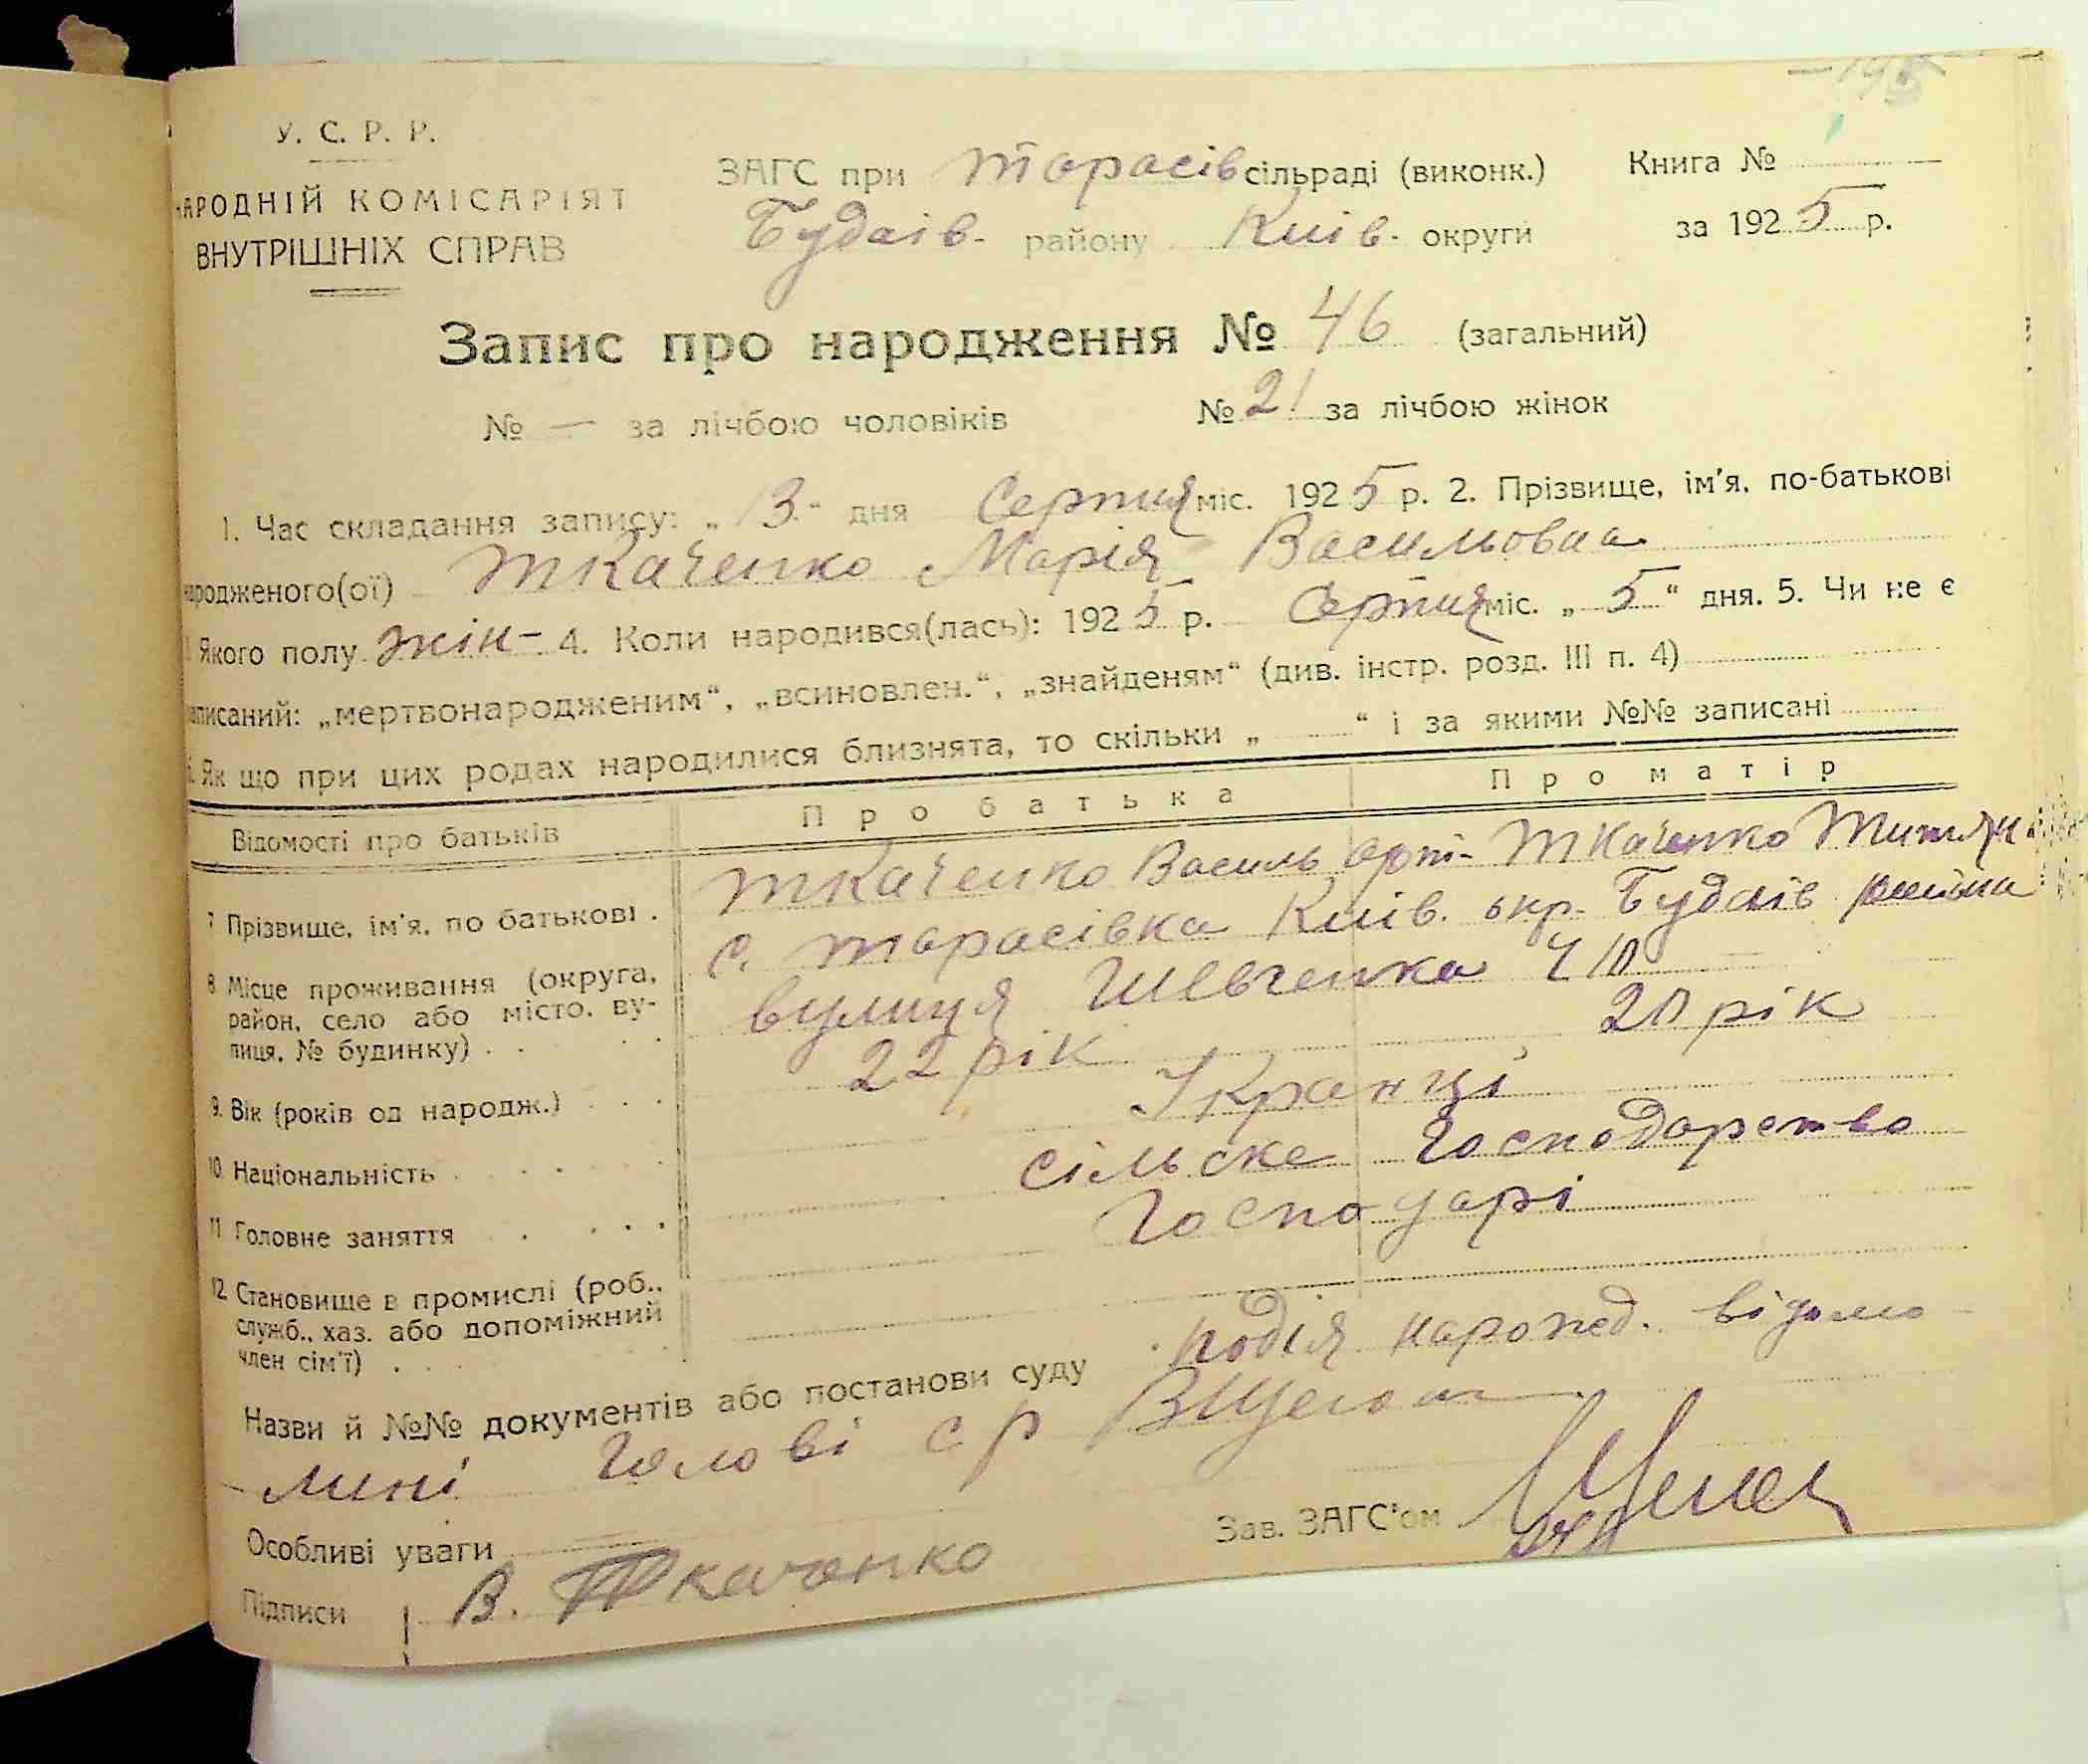 У. С. Р. Р.
НАРОДНІЙ КОМІСАРІЯТ
ВНУТРІШНІХ СПРАВ
ЗАГС при Тарасів сільраді (виконк.)
Будаів- району Киів- округи
Книга №
за 1925 р.
Запис про народження № 46 (загальний)
№ — за лічбою чоловіків № 21 за лічбою жінок
1. Час складання запису: „13“ дня Серпня міс. 1925 р. 2. Прізвище, ім'я, по-батькові
народженого(ої) Ткаченко Марія Васильовна
Якого полу жін- 4. Коли народився(лась): 1925 р. Серпня міс. „5“ дня. 5. Чи не є
записаний: „мертвонародженим“, „всиновлен.“, „знайденям“ (див. інстр. розд. III п. 4)
6. Як що при цих родах народилися близнята, то скільки „ “ і за якими №№ записані
Відомості про батьків Про батька Про матір
7 Прізвище, ім'я, по батькові . Ткаченко Василь Ткаченко
8 Місце проживання (округа, район, село або місто, вулиця, № будинку) . с. Тарасівка Киів. окр. Будаів района
вулиця Шевченка
9. Вік (років од народж.) 22 рік 20 рік
10. Національність Укранці
11 Головне заняття сільске господарство
12. Становище в промислі (роб., служб., хаз. або допоміжний член сім'ї) . Господарі
Назви й №№ документів або постанови суду подія нарожд. відомо
мині голові с р
Особливі уваги
Зав. ЗАГС'ом
Підписи В. Ткаченко